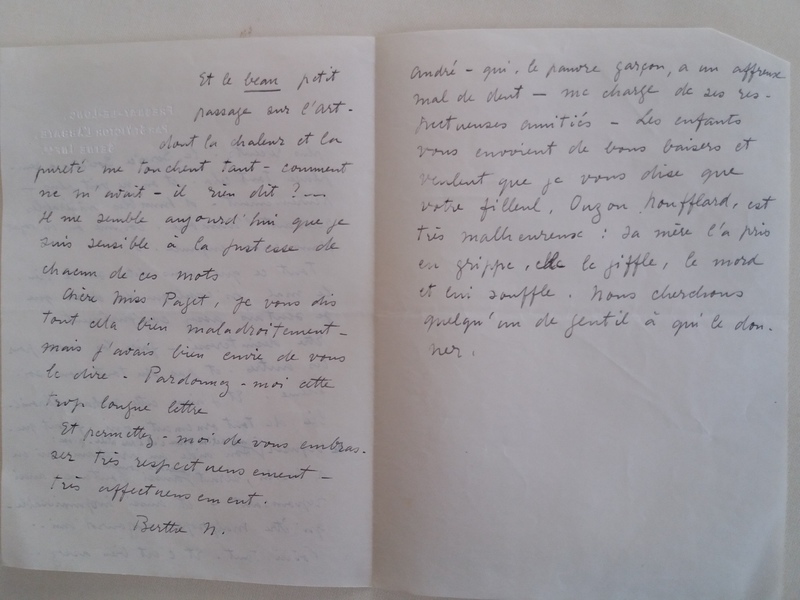 Et le beau petit
passage sur l'art -
dont la chaleur et la
pureté me touchent tant - comment
ne m'avait - il rien dit ? -
Il me semble aujourd'hui que je
suis sensible à la justesse de
chacun de ces mots
Chère Miss Paget, je vous dis
tout cela bien maladroitement -
mais j'avais bien envie de vous
le dire - Pardonnez - moi cette
trop longue lettre
Et permettez - moi de vous embras-
ser très respectueusement -
très affectueusement.
Berthe N.
André - qui, le pauvre garçon, a un affreux
mal de dent - me charge de ses res-
pectueuses amitiés - Les enfants
vous envoient de bons baisers et
veulent que je vous dise que
votre filleul, Ouzon Noufflard, est
très malheureux : sa mère l'a pris
en grippe, elle le giffle, le mord
et lui souffle. Nous cherchons
quelqu'un de gentil à qui le don-
ner.